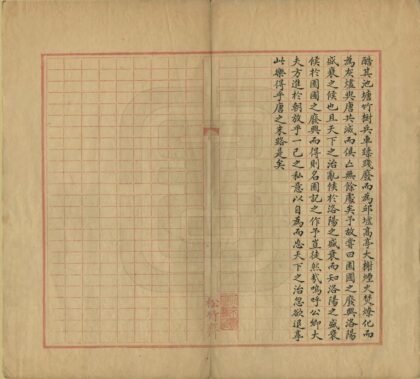 酷其池塘竹樹兵車蹂踐廢而為邱墟高亭大榭煙火焚燎化而
為灰燼與唐共滅而俱亡無餘處矣予故嘗曰園囿之廢興洛陽
盛衰之候也且天下之治亂候於洛陽之盛衰而知洛陽之盛衰
候於園囿之廢興而得則名園記之作予豈徒然哉嗚呼公卿大
夫方進於朝放乎一己之私意以自為而忘天下之治忽欲退享
此樂得乎唐之末路是矣
松竹齋